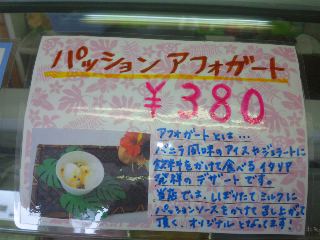 パッション アフォガート
¥380
アフォガートとは…
バニラ風味のアイスやジェラートに
飲料をかけて食べるイタリア
発祥のデザートです。
当店では、しぼりたてミルクに
パッションソースをかけて召し上がって
頂く、オリジナルとなってます!